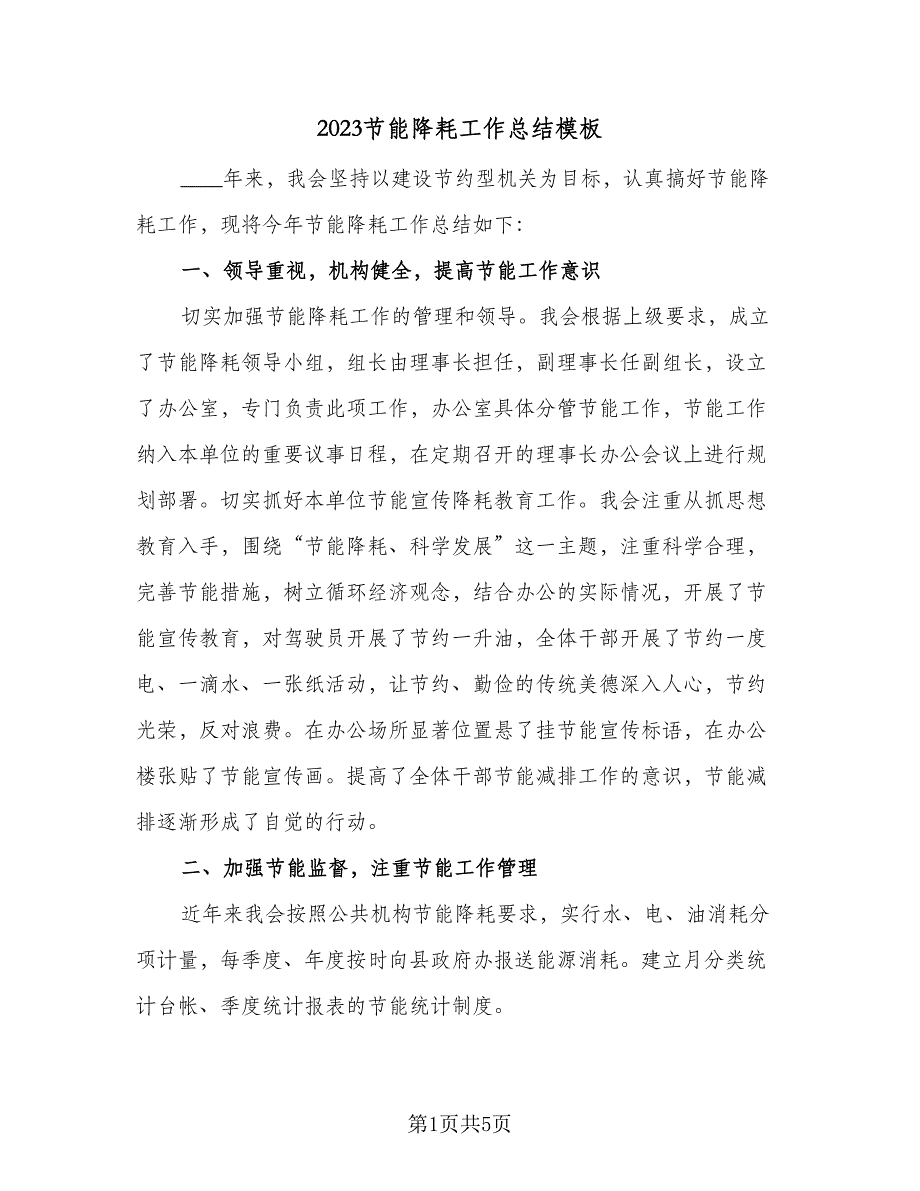 2023节能降耗工作总结模板
____年来，我会坚持以建设节约型机关为目标，认真搞好节能降
耗工作，现将今年节能降耗工作总结如下：
一、领导重视，机构健全，提高节能工作意识
切实加强节能降耗工作的管理和领导。我会根据上级要求，成立
了节能降耗领导小组，组长由理事长担任，副理事长任副组长，设立
了办公室，专门负责此项工作，办公室具体分管节能工作，节能工作
纳入本单位的重要议事日程，在定期召开的理事长办公会议上进行规
划部署。切实抓好本单位节能宣传降耗教育工作。我会注重从抓思想
教育入手，围绕“节能降耗、科学发展”这一主题，注重科学合理，
完善节能措施，树立循环经济观念，结合办公的实际情况，开展了节
能宣传教育，对驾驶员开展了节约一升油，全体干部开展了节约一度
电、一滴水、一张纸活动，让节约、勤俭的传统美德深入人心，节约
光荣，反对浪费。在办公场所显著位置悬了挂节能宣传标语，在办公
楼张贴了节能宣传画。提高了全体干部节能减排工作的意识，节能减
排逐渐形成了自觉的行动。
二、加强节能监督，注重节能工作管理
近年来我会按照公共机构节能降耗要求，实行水、电、油消耗分
项计量，每季度、年度按时向县政府办报送能源消耗。建立月分类统
计台帐、季度统计报表的节能统计制度。
第1页共5页